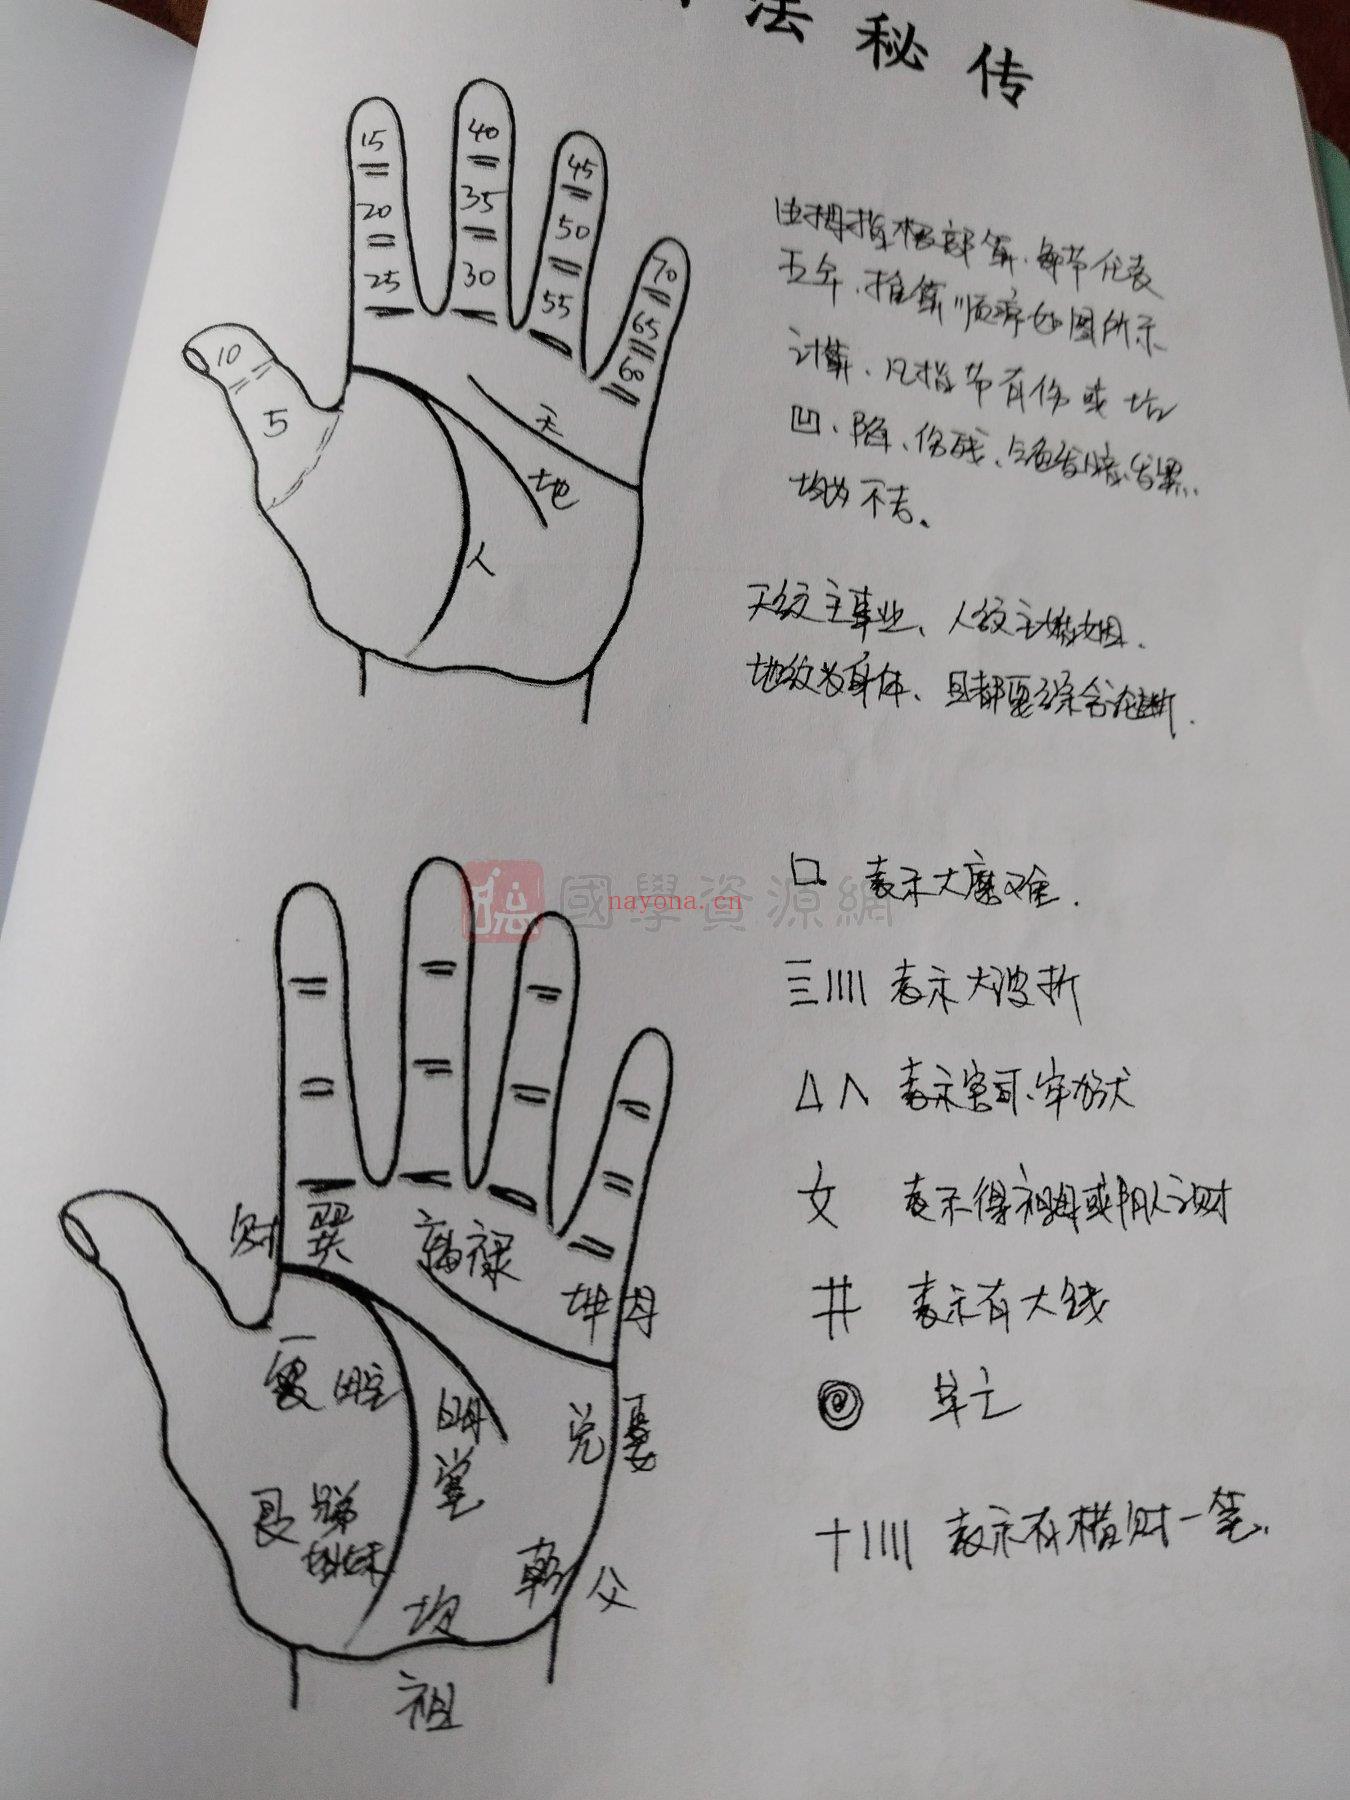 法秘传
15
20
25
40
35
30
45
50
55
70
65
60
10
5
天
地
人
由拇指根部算、每节代表
五年、推算顺序如图所示
计算、凡指节有伤或
凹、陷、伤残、
均为不吉。
天纹主事业、人纹主婚姻.
地纹为身体、且都要综合论断.
國學資源網
nayona.cn
口 表示大磨难.
三 |||| 表示大波折
△ ∧ 表示官司、牢狱
女 表示得祖母或阴人之财
井 表示有大钱
◎ 早亡
十 |||| 表示有横财一笔.
财 巽 福禄
坤 母
震 田宅
明堂
兑 妻
艮 兄弟
姐妹
乾 父
坎
祖